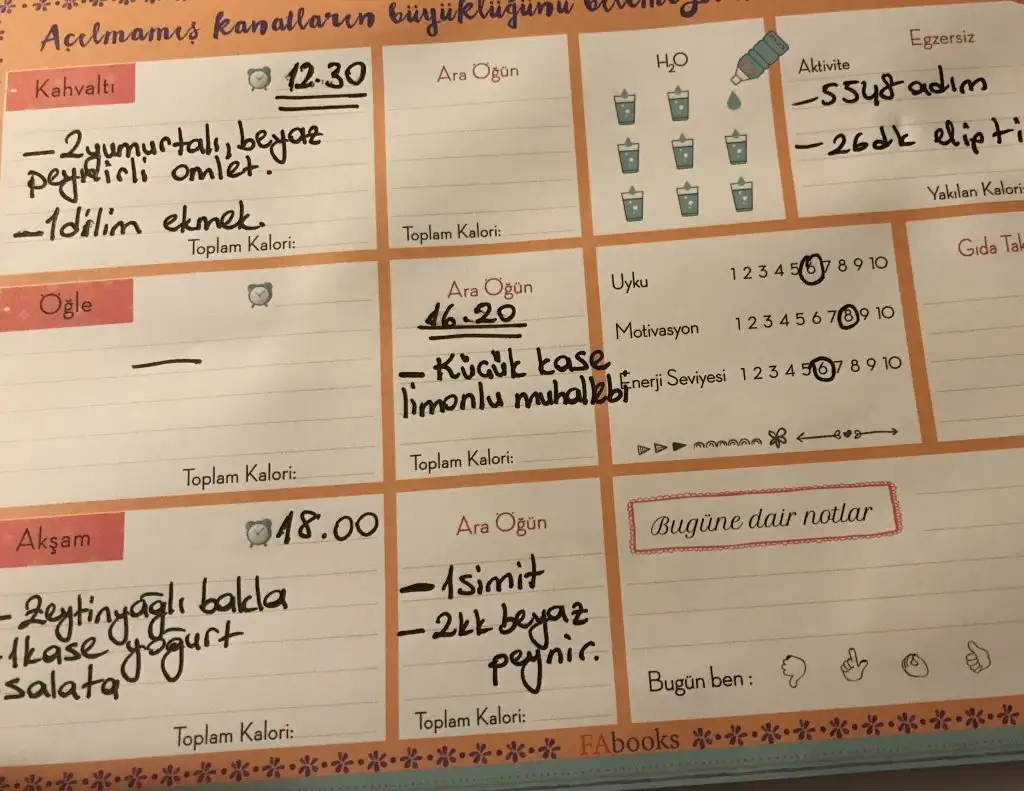 Açılmamış kanatların büyüklüğünü
Kahvaltı
12.30
- 2 yumurtalı, beyaz
peynirli omlet.
- 1 dilim ekmek.
Toplam Kalori:
Ara Öğün
Toplam Kalori:
H₂O
Egzersiz
Aktivite
- 5548 adım
- 26 dk elipti
Yakılan Kalori
Öğle
—
Toplam Kalori:
Ara Öğün
16.20
- Küçük kase
limonlu muhallebi
Toplam Kalori:
Uyku 1 2 3 4 5 6 7 8 9 10
Motivasyon 1 2 3 4 5 6 7 8 9 10
Enerji Seviyesi 1 2 3 4 5 6 7 8 9 10
Gıda Tak
Akşam
18.00
- Zeytinyağlı bakla
- 1 kase yoğurt
salata
Toplam Kalori:
Ara Öğün
- 1 simit
- 2 kk beyaz
peynir.
Toplam Kalori:
Bugüne dair notlar
Bugün ben :
FAbooks